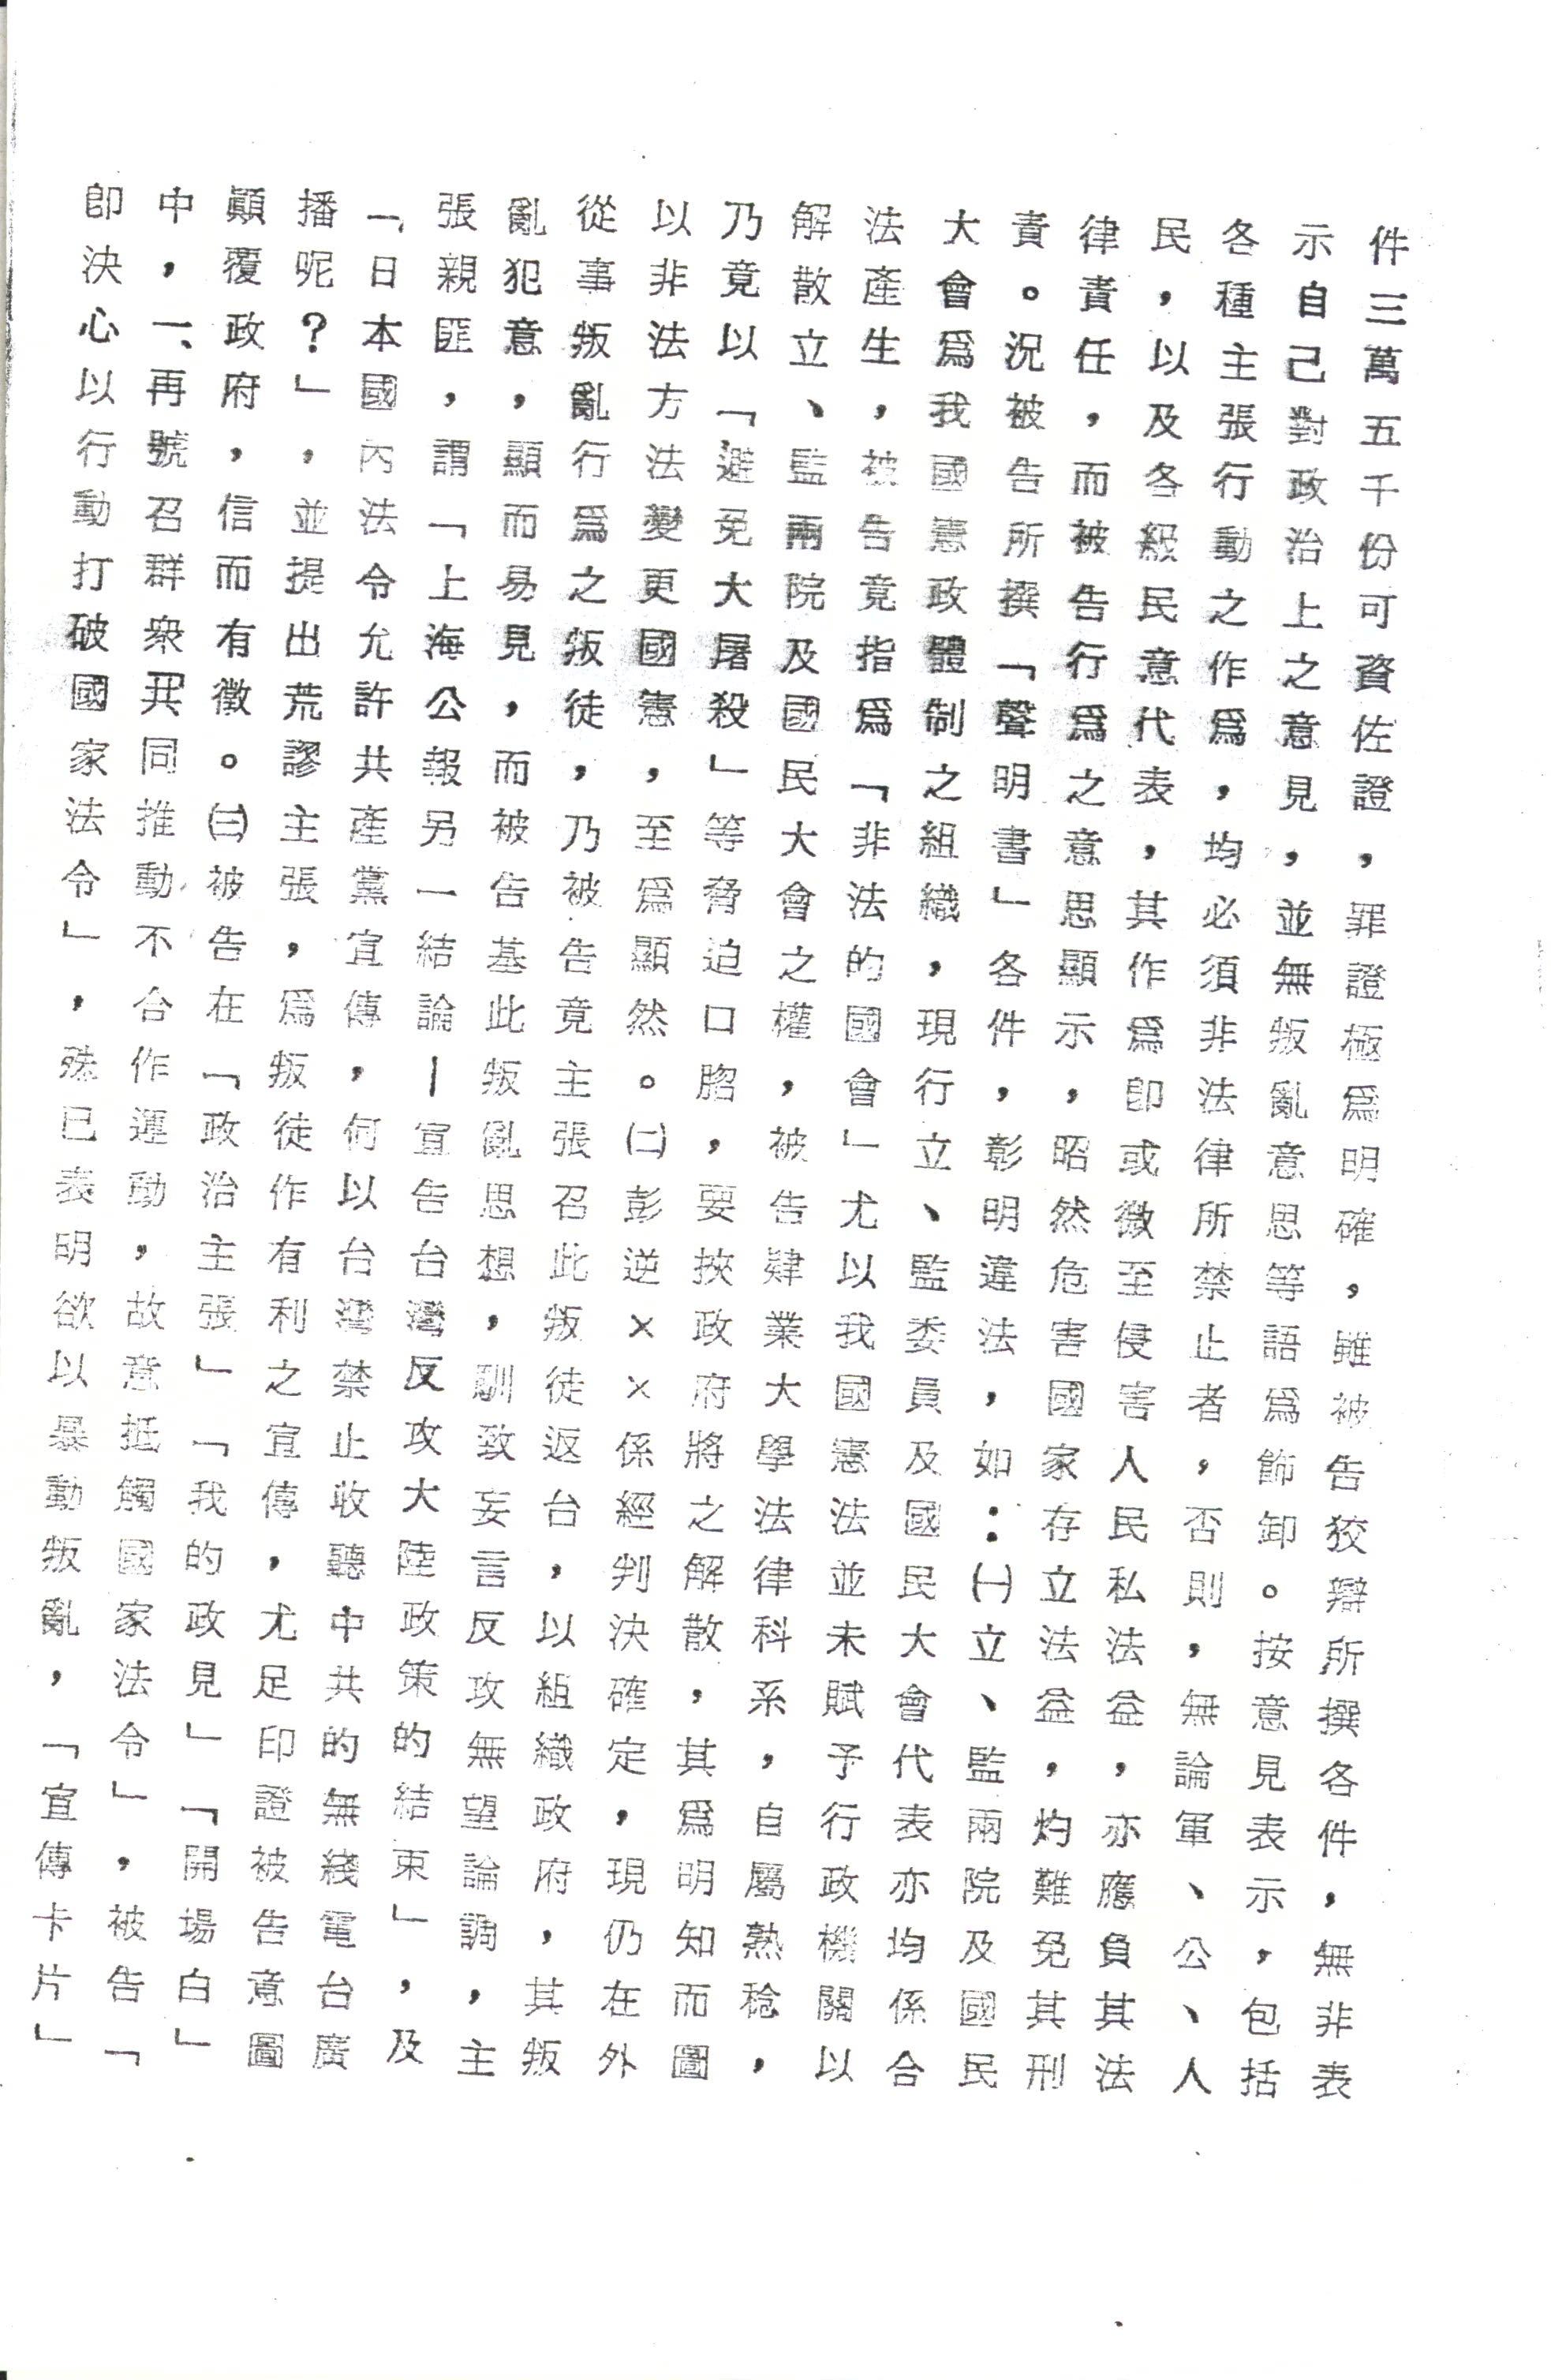 件三萬五千份可資佐證，罪證極為明確，雖被告狡辯所撰各件，無非表
示自己對政治上之意見，並無叛亂意思等語為飾卸。按意見表示，包括
各種主張行動之作為，均必須非法律所禁止者，否則，無論軍、公、人
民，以及各級民意代表，其作為即或微至侵害人民私法益，亦應負其法
律責任，而被告行為之意思顯示，昭然危害國家存立法益，灼難免其刑
責。況被告所撰「聲明書」各件，彰明違法，如：㈠立、監兩院及國民
大會為我國憲政體制之組織，現行立、監委員及國民大會代表亦均係合
法產生，被告竟指為「非法的國會」尤以我國憲法並未賦予行政機關以
解散立、監兩院及國民大會之權，被告肄業大學法律科系，自屬熟稔，
乃竟以「避免大屠殺」等脅迫口脗，要挾政府將之解散，其為明知而圖
以非法方法變更國憲，至為顯然。㈡彭逆××係經判決確定，現仍在外
從事叛亂行為之叛徒，乃被告竟主張召此叛徒返台，以組織政府，其叛
亂犯意，顯而易見，而被告基此叛亂思想，馴致妄言反攻無望論調，主
張親匪，謂「上海公報另一結論—宣告台灣反攻大陸政策的結束」，及
「日本國內法令允許共產黨宣傳，何以台灣禁止收聽中共的無綫電台廣
播呢？」，並提出荒謬主張，為叛徒作有利之宣傳，尤足印證被告意圖
顚覆政府，信而有徵。㈢被告在「政治主張」「我的政見」「開場白」
中，一再號召群衆共同推動不合作運動，故意抵觸國家法令」，被告「
即決心以行動打破國家法令」，殊已表明欲以暴動叛亂，「宣傳卡片」